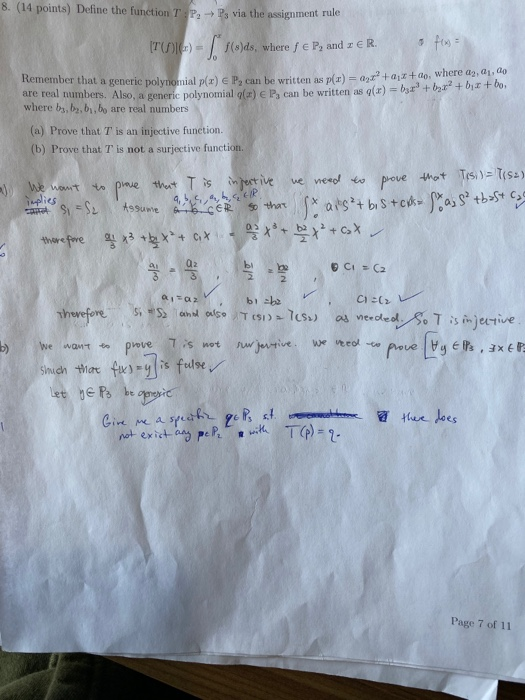 8. (14 points) Define the function T : P₂ → P₃ via the assignment rule
[T(f)](x) = ∫₀ˣ f(s)ds, where f ∈ P₂ and x ∈ R.
f(x) =
Remember that a generic polynomial p(x) ∈ P₂ can be written as p(x) = a₂x² + a₁x + a₀, where a₂, a₁, a₀
are real numbers. Also, a generic polynomial q(x) ∈ P₃ can be written as q(x) = b₃x³ + b₂x² + b₁x + b₀,
where b₃, b₂, b₁, b₀ are real numbers
(a) Prove that T is an injective function.
(b) Prove that T is not a surjective function.
a) We want to prove that T is injective we need to prove that T(S₁) = T(S₂)
implies S₁ = S₂ Assume a₁, b₁, c₁, a₂, b₂, c₂ ∈ R so that ∫₀ˣ a₁s² + b₁s + c₁ds = ∫₀ˣ a₂s² + b₂s + c₂
therefore a₁/3 x³ + b₁/2 x² + c₁x = a₂/3 x³ + b₂/2 x² + c₂x ✓
a₁/3 = a₂/3 , b₁/2 = b₂/2 , c₁ = c₂
a₁ = a₂ ✓ , b₁ = b₂ ✓ , c₁ = c₂ ✓
Therefore S₁ = S₂ and also T(S₁) = T(S₂) as needed. So T is injective.
b) We want to prove T is not surjective. We need to prove [∀y ∈ P₃, ∃x ∈ P
Shuch that f(x) = y] is false ✓
Let y ∈ P₃ be generic
Give me a specific q ∈ P₃ s.t. there does
not exist any p ∈ P₂ with T(p) = q.
Page 7 of 11